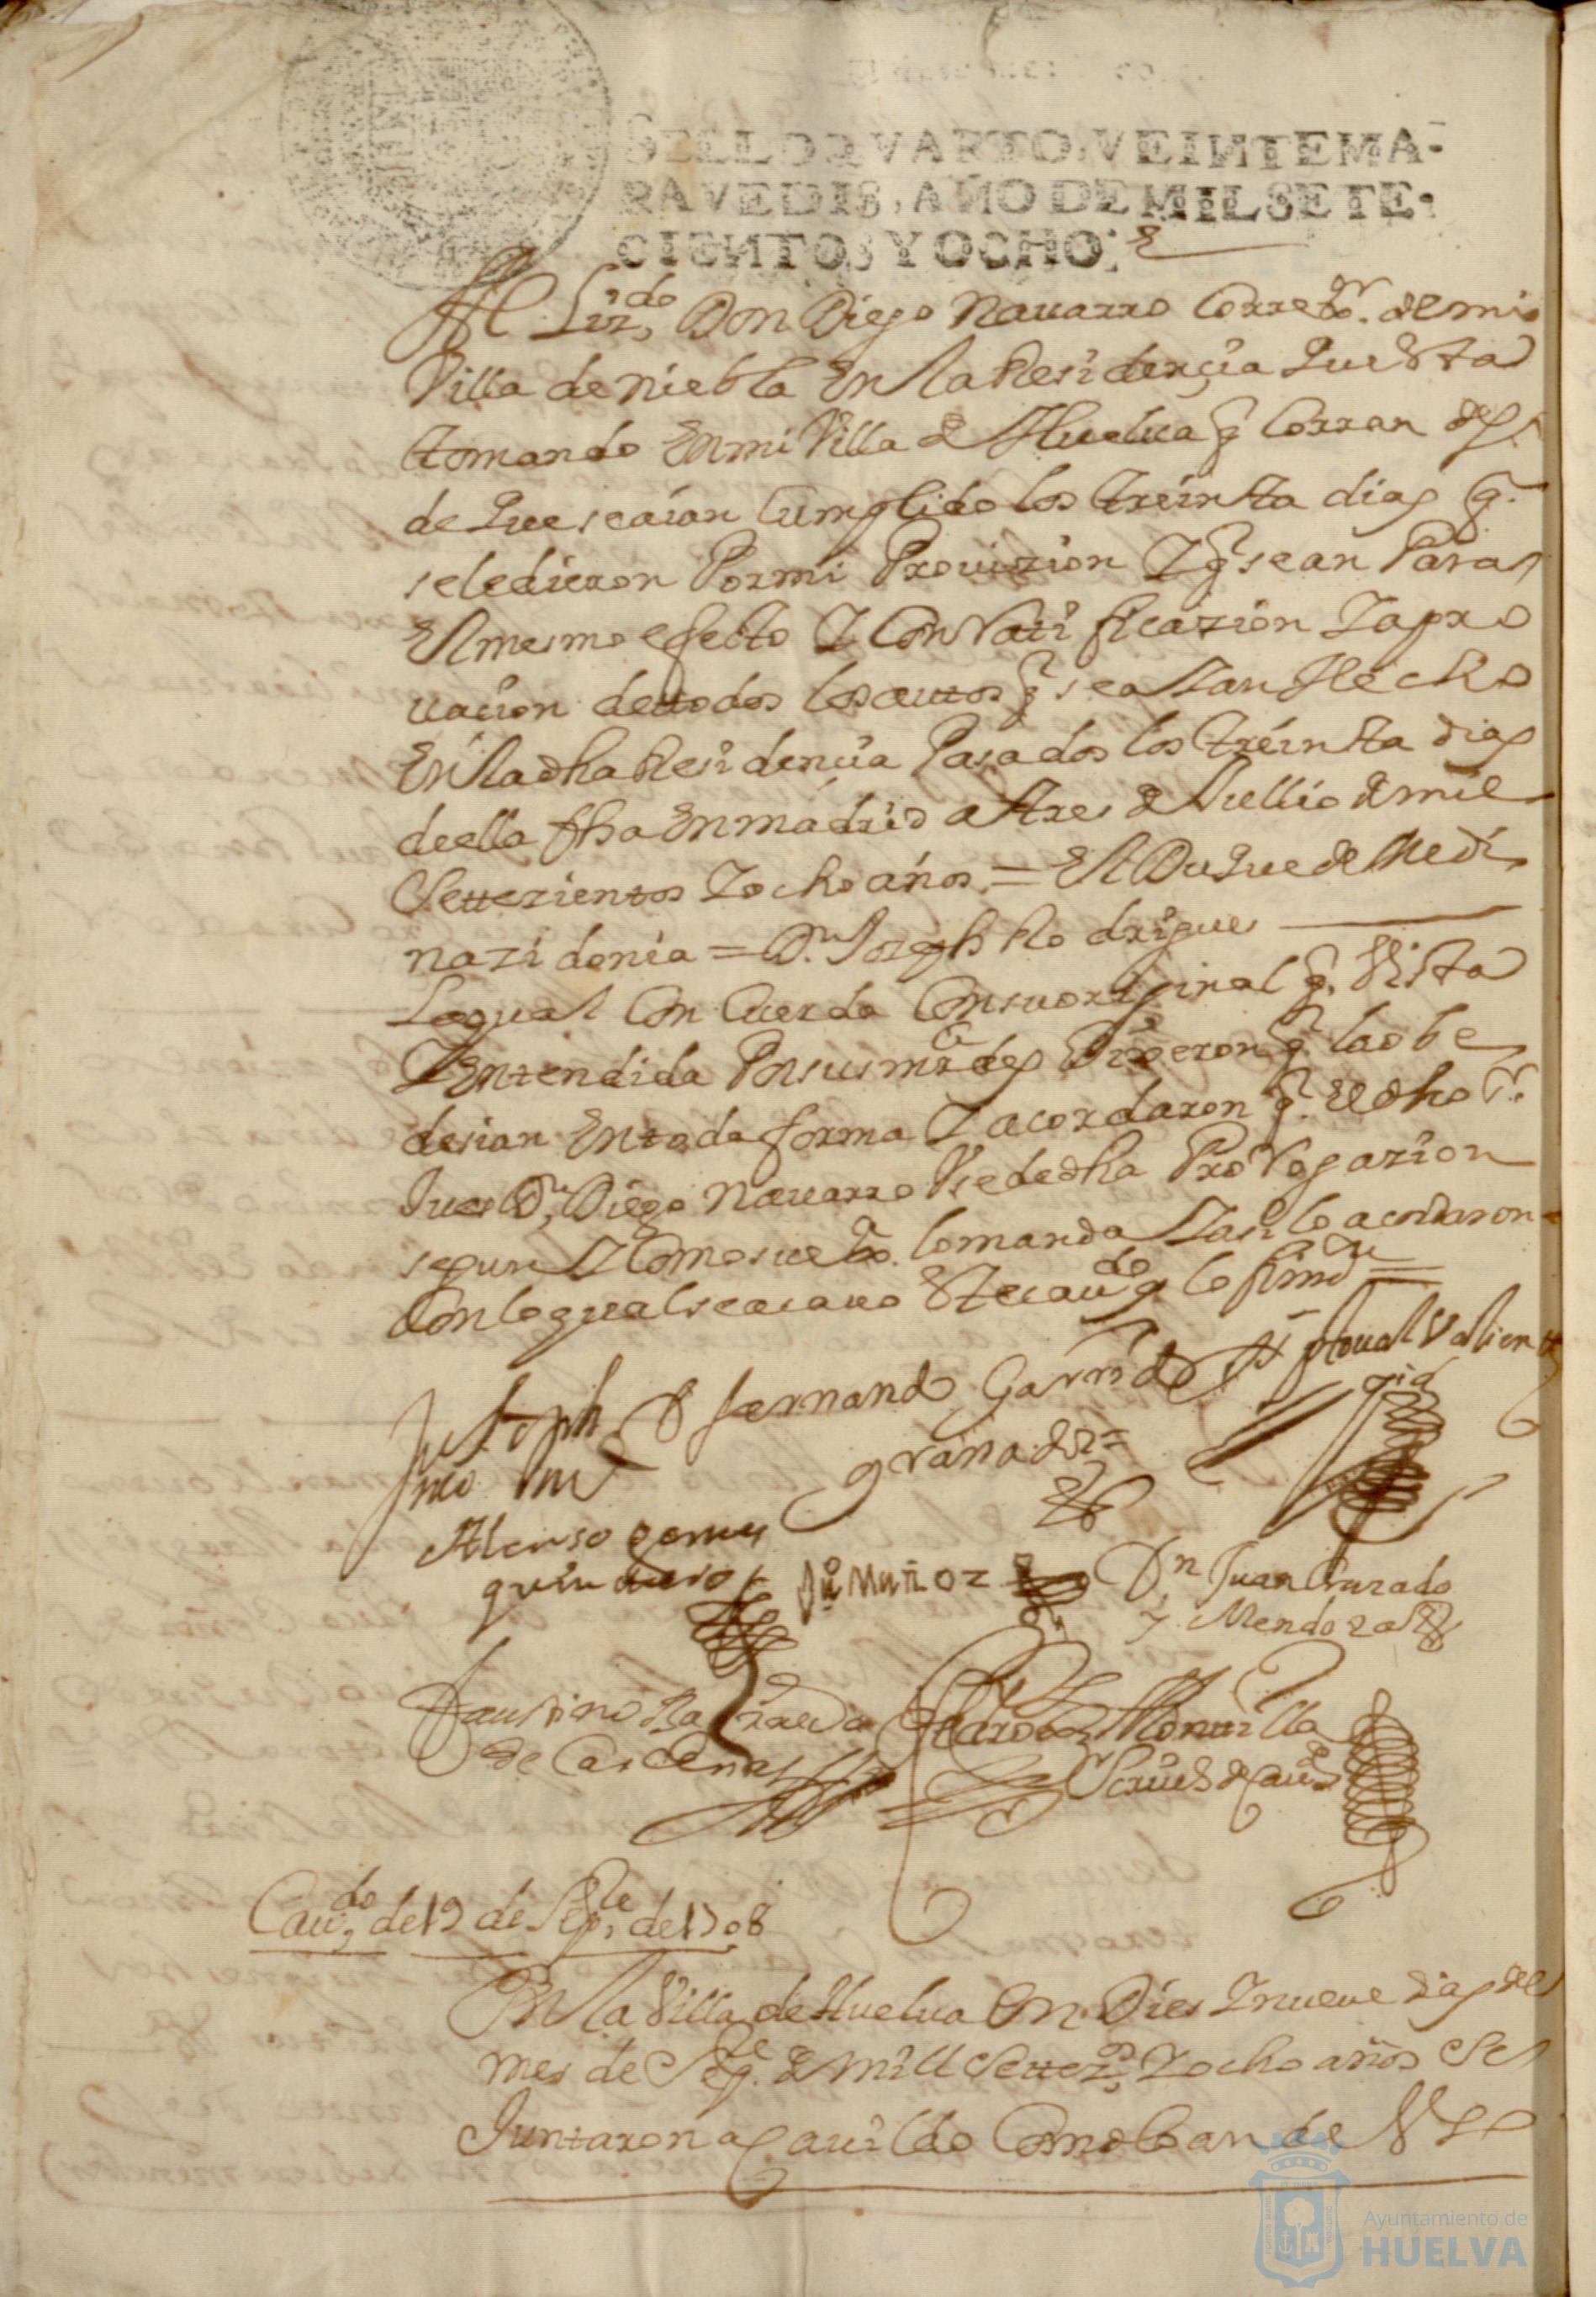 SELLO QVARTO, VEINTE MA-
RAVEDIS, AÑO DE MIL SETE-
CIENTOS Y OCHO.
Al Lizdo Don Diego Nauarro Correxor. de mi
Villa de niebla En la Residençia que Esta
tomando En mi Villa de Huelua q̃ Corran desp
de que seaian Cumplido los treinta dias q̃.
seledieron Por mi Prouizion Y q̃ sean Para
El mesmo efecto Y Con Ratificazion Yapro
uacion de ttodos los auttos q̃ sea Yan Hecho
En la dha Residencia Pasados los treinta dias
de ella fha En madrid a tres de Jullio de mil
Settezientos Y ocho años = El Duque de Medi
nazidonia = Dn. Joseph Rodrigues
Lo qual Concuerda Con su orijinal q̃. Vista
Y Entendida Por sus mrdes Dixeron q̃. la obe
desian En toda forma Y acordaron q̃. el dho Sr.
Jues Dn. Diego Nauarro Vse de dha Prorrogazion
segun Y Como su exa. lo manda Y asi lo acordaron
Con lo qual se acauo Este caudo q̃ lo firmaron =
Juo Joseph
Dn fernando Garrido
granado =
xptoual Valiente
Alonso gomes
quintero
Juº Muñoz
Dn Juan Qurado
y Mendoza
faustino Barreda
de Cardenas
Montilla
Scriuº de Cauº
Caudo, de 19 de Septe, de 1708
En la Villa de Huelua En Dies Y nueue dias del
mes de Sepe. de Mill Settezos Y ocho años Se
Juntaron a Cauildo Como lo an de Vso
Ayuntamiento de
HUELVA